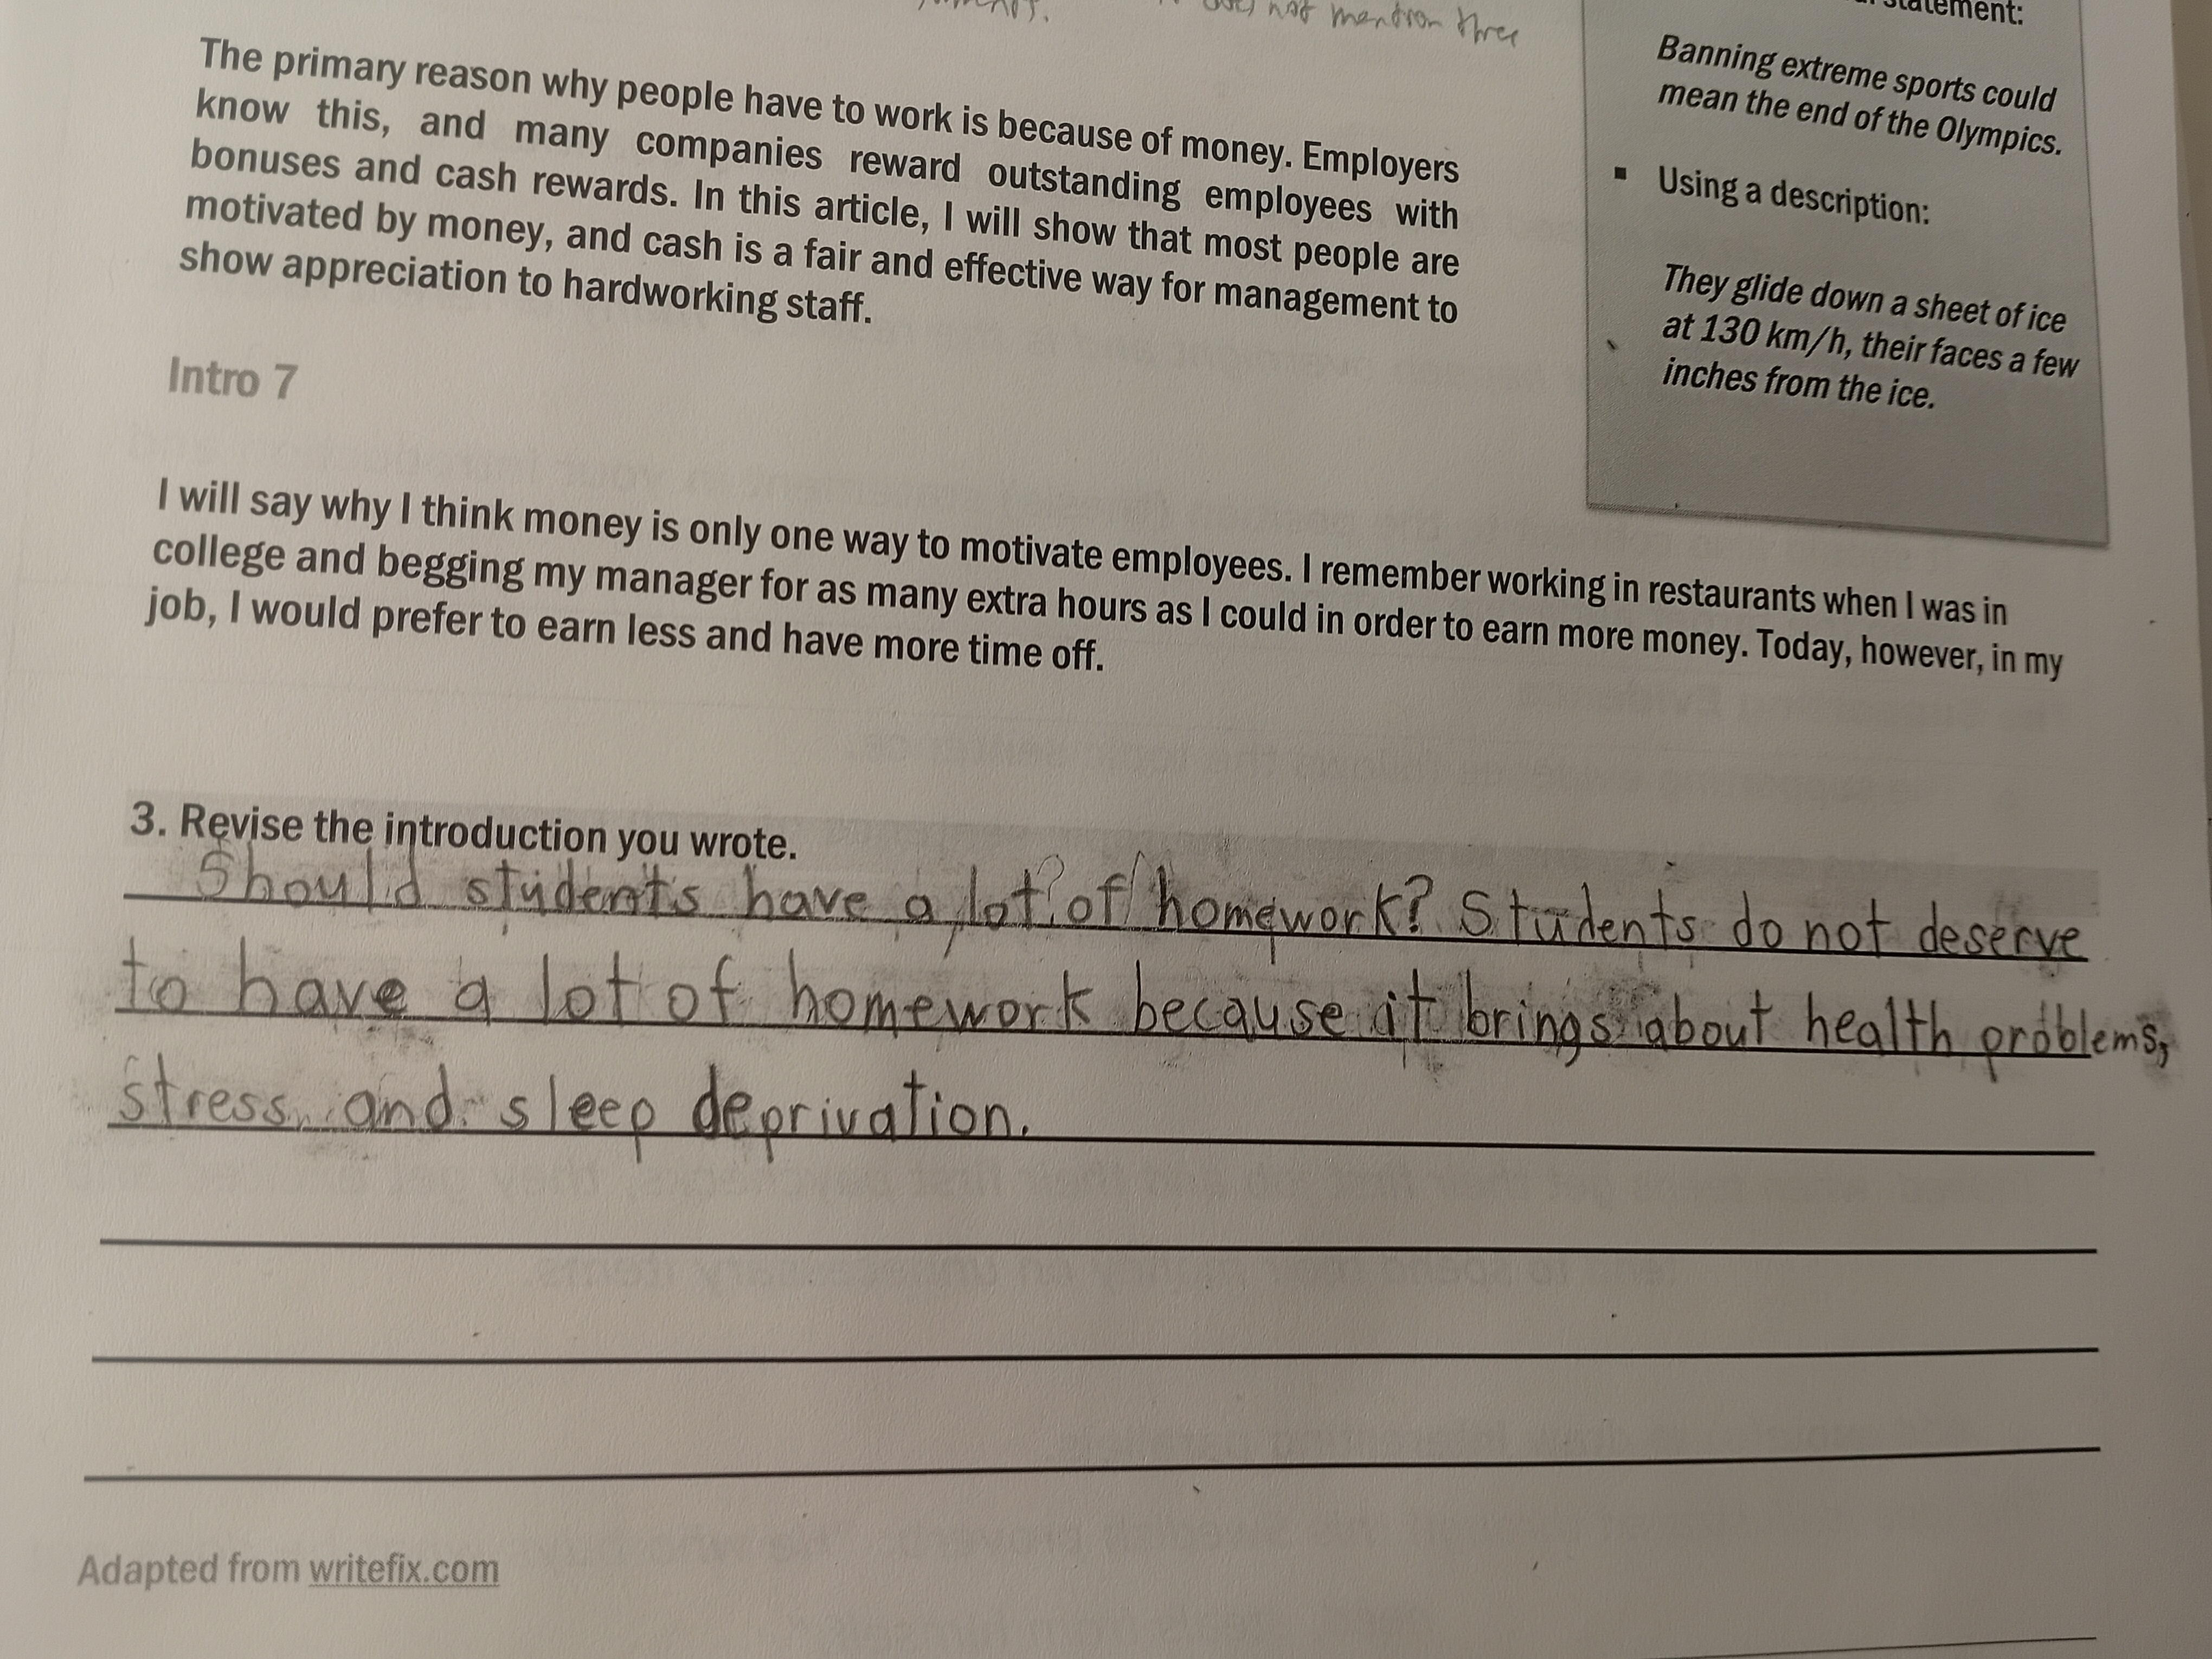 not mention three
The primary reason why people have to work is because of money. Employers
know this, and many companies reward outstanding employees with
bonuses and cash rewards. In this article, I will show that most people are
motivated by money, and cash is a fair and effective way for management to
show appreciation to hardworking staff.
statement:
Banning extreme sports could
mean the end of the Olympics.
▪ Using a description:
They glide down a sheet of ice
at 130 km/h, their faces a few
inches from the ice.
Intro 7
I will say why I think money is only one way to motivate employees. I remember working in restaurants when I was in
college and begging my manager for as many extra hours as I could in order to earn more money. Today, however, in my
job, I would prefer to earn less and have more time off.
3. Revise the introduction you wrote.
Should students have a lot of homework? Students do not deserve
to have a lot of homework because it brings about health problems,
stress and sleep deprivation.
Adapted from writefix.com